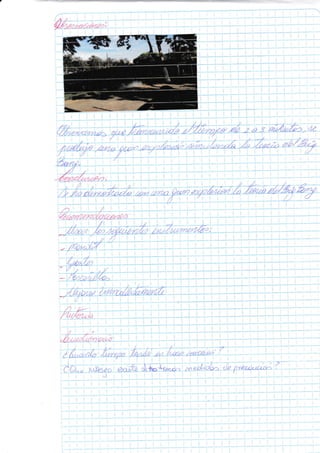 Observaciones:
Observamos que transcurrido el tiempo de 2 a 3 minutos, se
produjo una gran explosión simulando la teoria del Big
Bang.
Conclusión:
Se ha demostrado con una gran explosion la teoria del Big Bang
Recomendaciones
- Usar los siguientes instrumentos:
- Mandil
- Guantes
- Mascarilla
- Alejarse inmediatamente
Autoria
Cuestionario
¿Cuanto tiempo tardó en hacer ?
¿Que riesgo existe si no tomas medidas de precaucion?